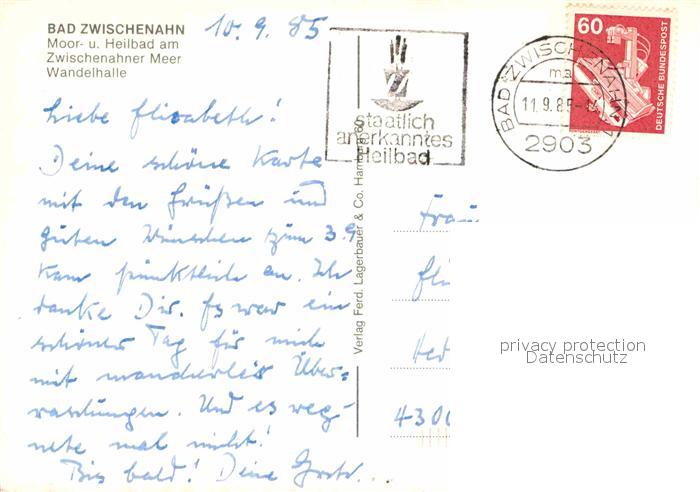 BAD ZWISCHENAHN
Moor- u. Heilbad am
Zwischenahner Meer
Wandelhalle
10.9.85
Liebe Elisabeth!
Deine schöne Karte
mit den Grüßen und
guten Wünschen zum 3.9.
kam pünktlich an. Ich
danke Dir. Es war ein
schöner Tag für mich
mit mancherlei Über=
raschungen. Und es reg-
nete mal nicht!
Bis bald! Deine
staatlich
anerkanntes
Heilbad
BAD ZWISCHENAHN
11.9.85
2903
60
DEUTSCHE BUNDESPOST
Verlag Ferd. Lagerbauer & Co. Hamburg 60
Frau
Eli
430
privacy protection
Datenschutz